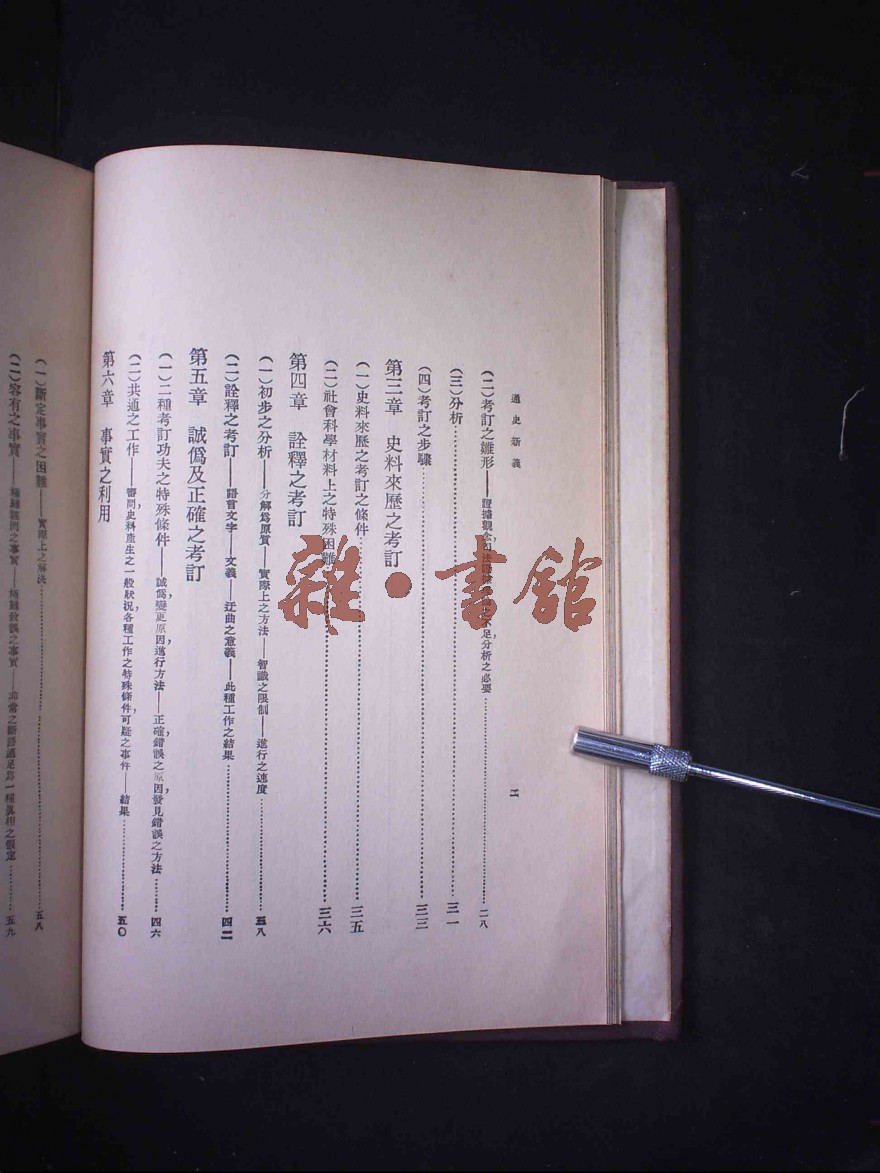 通史新義
二
(二)考訂之雛形——證據觀念 不足分析之必要 二八
(三)分析 三一
(四)考訂之步驟 三三
第三章 史料來歷之考訂
(一)史料來歷之考訂之條件 三五
(二)社會科學材料上之特殊困難 三六
第四章 詮釋之考訂
(一)初步之分析——分解爲原質——實際上之方法——智識之限制——進行之速度 三八
(二)詮釋之考訂——語言文字——文義——迂曲之意義——此種工作之結果 四二
第五章 誠僞及正確之考訂
(一)二種考訂功夫之特殊條件——誠僞,變更原因,進行方法——正確,錯誤之原因,發見錯誤之方法 四六
(二)共通之工作——審問史料產生之一般狀况,各種工作之特殊條件,可疑之事件——結果 五〇
第六章 事實之利用
(一)斷定事實之困難——實際上之解決 五八
(二)容有之事實——極難 之事實——極難致誤之事實——非常之斷語適足爲一種眞相之假定 五九
雜·書館